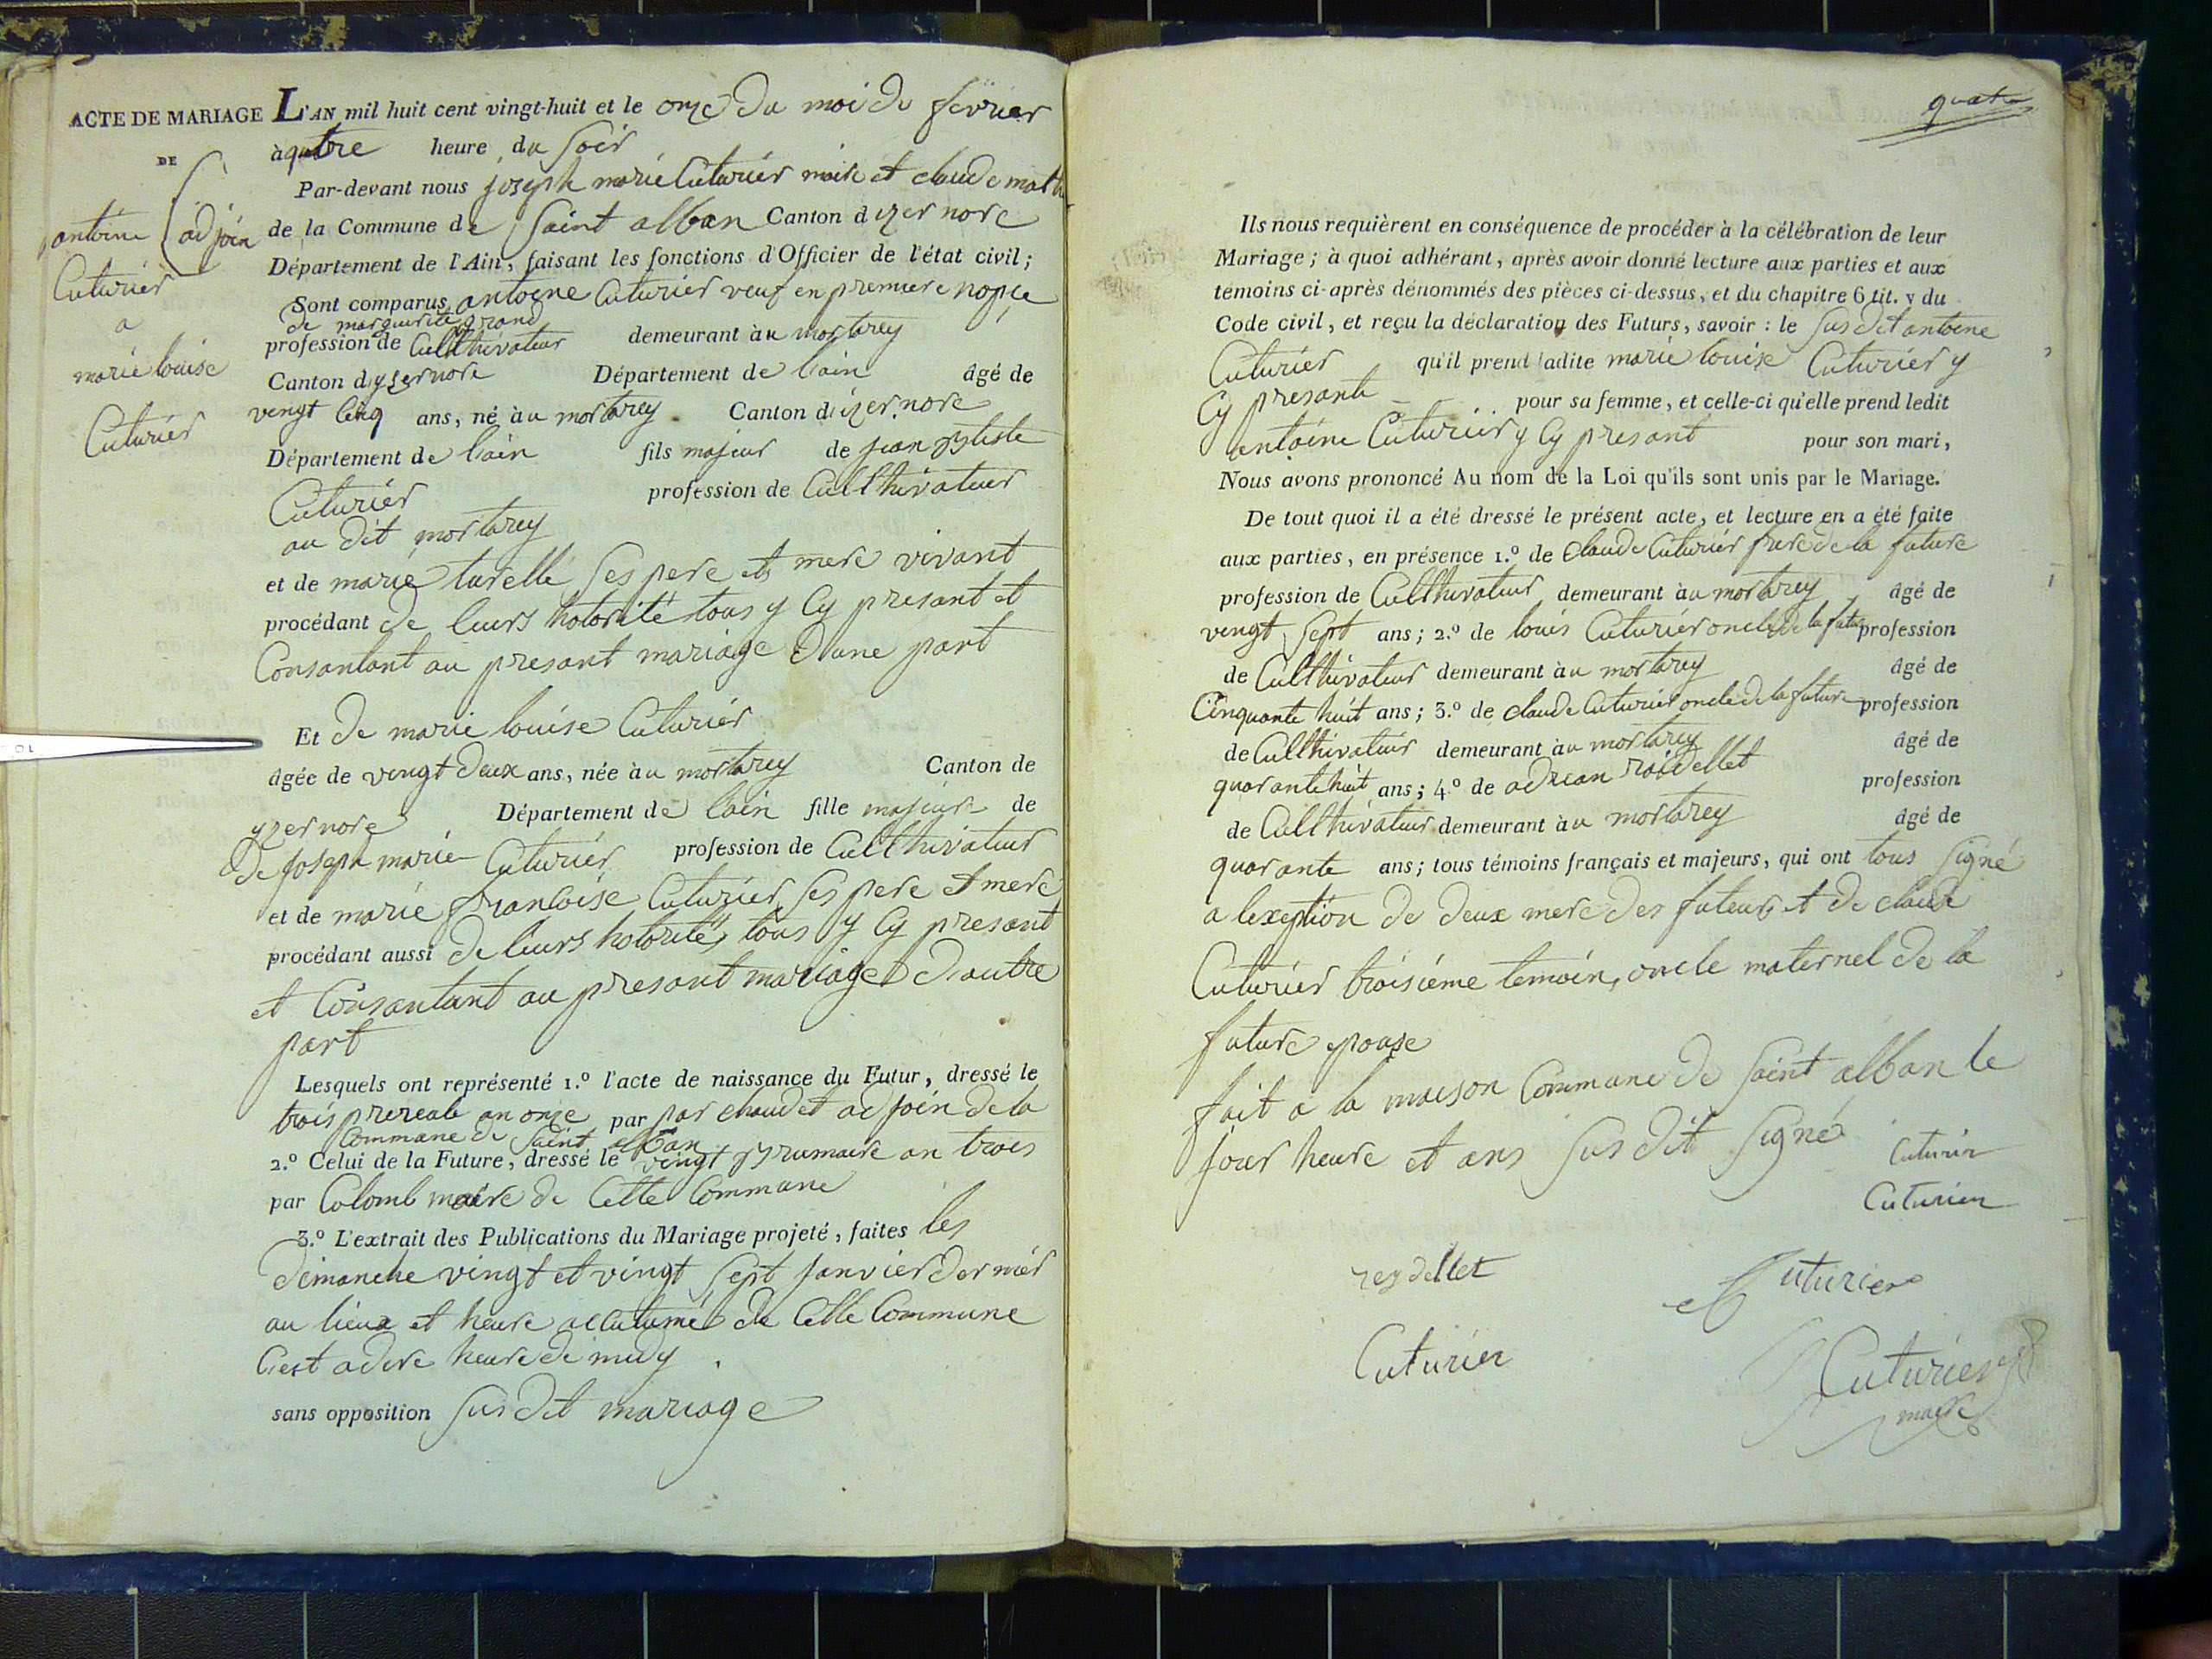 ACTE DE MARIAGE
DE
antoine
Cuturier
a
marie louise
Cuturier
L'AN mil huit cent vingt-huit et le onze Du moi de fevrier
à quatre heure du Soir
Par-devant nous joseph marie Cuturier maire et claude math
adjoin
de la Commune de Saint alban Canton d izernore
Département de l'Ain, faisant les fonctions d'Officier de l'état civil;
Sont comparus antoine Cuturier veuf en premiere nopce
de marguerite grand
profession de Cullthivateur demeurant àu mortarey
Canton d yzernore Département de lain âgé de
vingt Cinq ans, né àu mortarey Canton d izernore
Département de lain fils majeur de jean
Cuturier profession de Cullthivateur
au dit mortarey
et de marie turelle Ses pere et mere vivant
procédant de leurs hotorité tous y Cy presant et
Consantant au presant mariage D une part
Et De marie louise Cuturier
âgée de vingt Deux ans, née àu mortarey Canton de
yzernore Département de lain fille majeure de
De joseph marie Cuturier profession de Cullthivateur
et de marie francoise Cuturier Ses pere et mere
procédant aussi De leurs hotorité, tous y Cy presant
et Consantant au presant mariage D autre
part
Lesquels ont représenté 1.º l'acte de naissance du Futur, dressé le
trois prereale an onze par par chaudet adjoin de la
Commune de Saint alban
2.º Celui de la Future, dressé le vingt Brumaire an trois
par Colomb maire de Cette Commune
3.º L'extrait des Publications du Mariage projeté, faites les
Dimanche vingt et vingt Sept janvier dernier
au lieux et heure accutumé de Cette Commune
C'est adire heure de midy
sans opposition Sus dit mariage
quatre
Ils nous requièrent en conséquence de procéder à la célébration de leur
Mariage; à quoi adhérant, après avoir donné lecture aux parties et aux
témoins ci-après dénommés des pièces ci-dessus, et du chapitre 6 tit. v du
Code civil, et reçu la déclaration des Futurs, savoir: le Sus dit antoine
Cuturier qu'il prend ladite marie louise Cuturier y
Cy presante pour sa femme, et celle-ci qu'elle prend ledit
antoine Cuturier y Cy presant pour son mari,
Nous avons prononcé Au nom de la Loi qu'ils sont unis par le Mariage.
De tout quoi il a été dressé le présent acte, et lecture en a été faite
aux parties, en présence 1.º de Claude Cuturier frere de la future
profession de Cullthivateur demeurant àu mortarey âgé de
vingt Sept ans; 2.º de louis Cuturier oncle de la future profession
de Cullthivateur demeurant àu mortarey âgé de
Cinquante huit ans; 3.º de claude Cuturier oncle de la future profession
de Cullthivateur demeurant àu mortarey âgé de
quarante huit ans; 4.º de adrean raidellet profession
de Cullthivateur demeurant àu mortarey âgé de
quarante ans; tous témoins français et majeurs, qui ont tous Signé
a lexeption de deux mere des futeur et de claude
Cuturier troisiéme temoin, oncle maternel de la
future epouse
fait a la maison Commune de Saint alban le
jour heure et ans Sus dit Signé
Cuturier
Cuturier
reydellet
Cuturier
Cuturier
Cuturier
maire